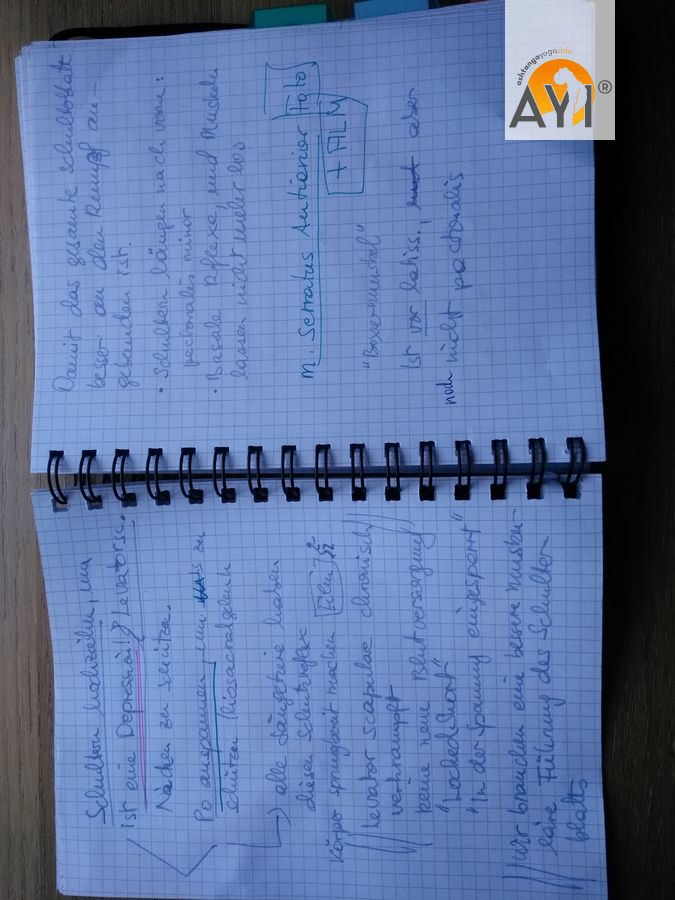 Schultern hochziehn, um
ist eine Depression! Levatorsc.
Nacken zu schützen.
Po anspannen, um zu
schützen Iliosacralgelenk
→ alle Säugetiere haben
diesen Schutzreflex
Körper sprungbereit machen Film
Levator scapulae chronisch
verkrampft
keine neue Blutversorgung
"Locked Short"
"In der Spannung eingesperrt"
Wir brauchen eine bessere musku-
läre Führung des Schulter-
blatts
Damit das gesamte Schulterblatt
besser an den Rumpf an-
gebunden ist.
• Schultern hängen nach vorn:
pectoralis minor
• Basale Reflexe, und Muskeln
lassen nicht mehr los
M. Serratus Anterior Foto
+ FILM
"Boxermuskel"
Ist vor latiss., aber
noch nicht pectoralis
ashtangayoga.info
AYI®